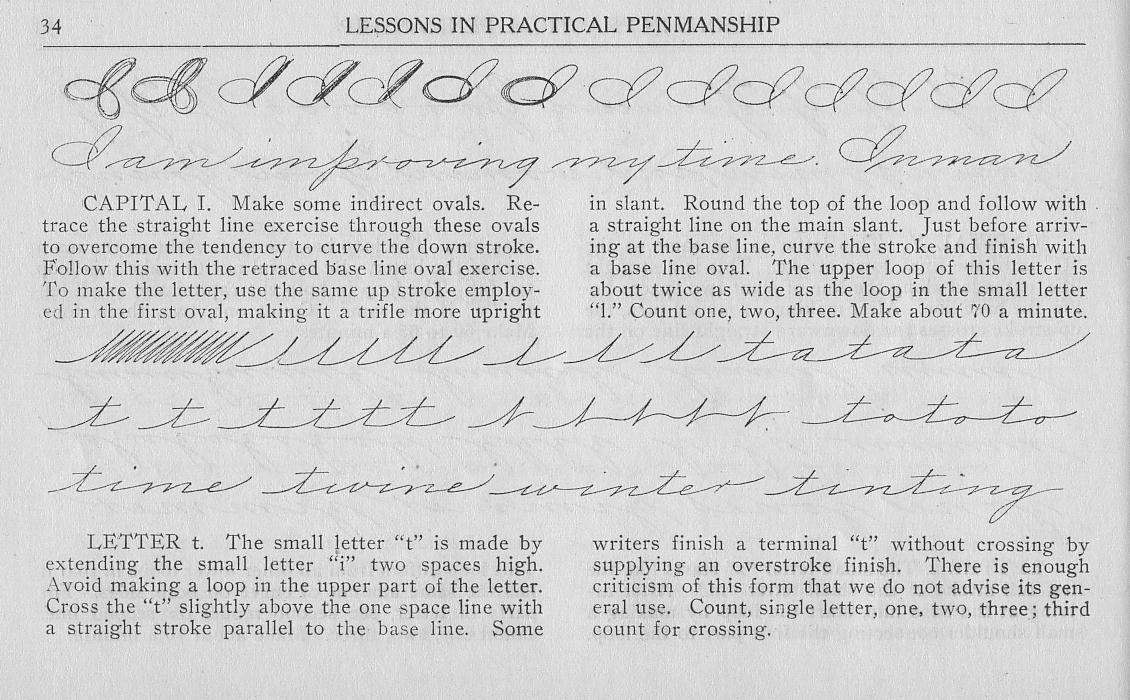 34 LESSONS IN PRACTICAL PENMANSHIP
I am improving my time. Inman
CAPITAL I. Make some indirect ovals. Re-
trace the straight line exercise through these ovals
to overcome the tendency to curve the down stroke.
Follow this with the retraced base line oval exercise.
To make the letter, use the same up stroke employ-
ed in the first oval, making it a trifle more upright
in slant. Round the top of the loop and follow with
a straight line on the main slant. Just before arriv-
ing at the base line, curve the stroke and finish with
a base line oval. The upper loop of this letter is
about twice as wide as the loop in the small letter
“l.” Count one, two, three. Make about 70 a minute.
t t t t a t a t a t a
t t t t t t t t t t t t t o t o t o
time twine winter tinting
LETTER t. The small letter “t” is made by
extending the small letter “i” two spaces high.
Avoid making a loop in the upper part of the letter.
Cross the “t” slightly above the one space line with
a straight stroke parallel to the base line. Some
writers finish a terminal “t” without crossing by
supplying an overstroke finish. There is enough
criticism of this form that we do not advise its gen-
eral use. Count, single letter, one, two, three; third
count for crossing.